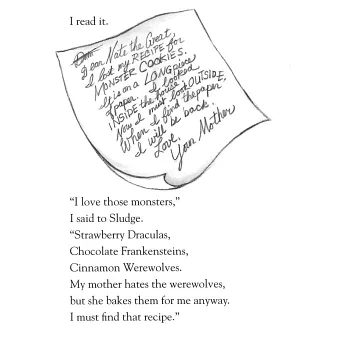 I read it.
Dear Nate the Great,
I lost my RECIPE for
MONSTER COOKIES.
It is on a LONG piece
of paper. I looked
INSIDE the house.
Now I must look OUTSIDE.
When I find the paper,
I will be back.
Love,
Your Mother
“I love those monsters,”
I said to Sludge.
“Strawberry Draculas,
Chocolate Frankensteins,
Cinnamon Werewolves.
My mother hates the werewolves,
but she bakes them for me anyway.
I must find that recipe.”